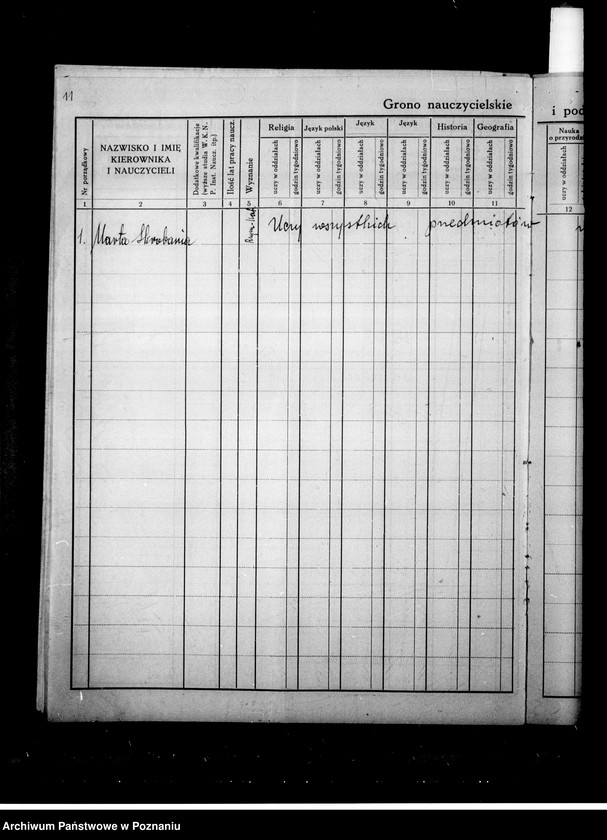 11
Grono nauczycielskie
i pod
Nr porządkowy
NAZWISKO I IMIĘ
KIEROWNIKA
I NAUCZYCIELI
Dodatkowe kwalifikacje
(wyższe studia W. K. N.
P. Inst. Naucz. itp.)
Ilość lat pracy naucz.
Wyznanie
Religia
Język polski
Język
Język
Historia
Geografia
Nauka
o przyrodz
uczy w oddziałach
godzin tygodniowo
uczy w oddziałach
godzin tygodniowo
uczy w oddziałach
godzin tygodniowo
uczy w oddziałach
godzin tygodniowo
uczy w oddziałach
godzin tygodniowo
uczy w oddziałach
godzin tygodniowo
uczy w oddziałach
1 2 3 4 5 6 7 8 9 10 11 12
1. Marta Skrobania Rzym-kat Uczy wszystkich przedmiotów
Archiwum Państwowe w Poznaniu